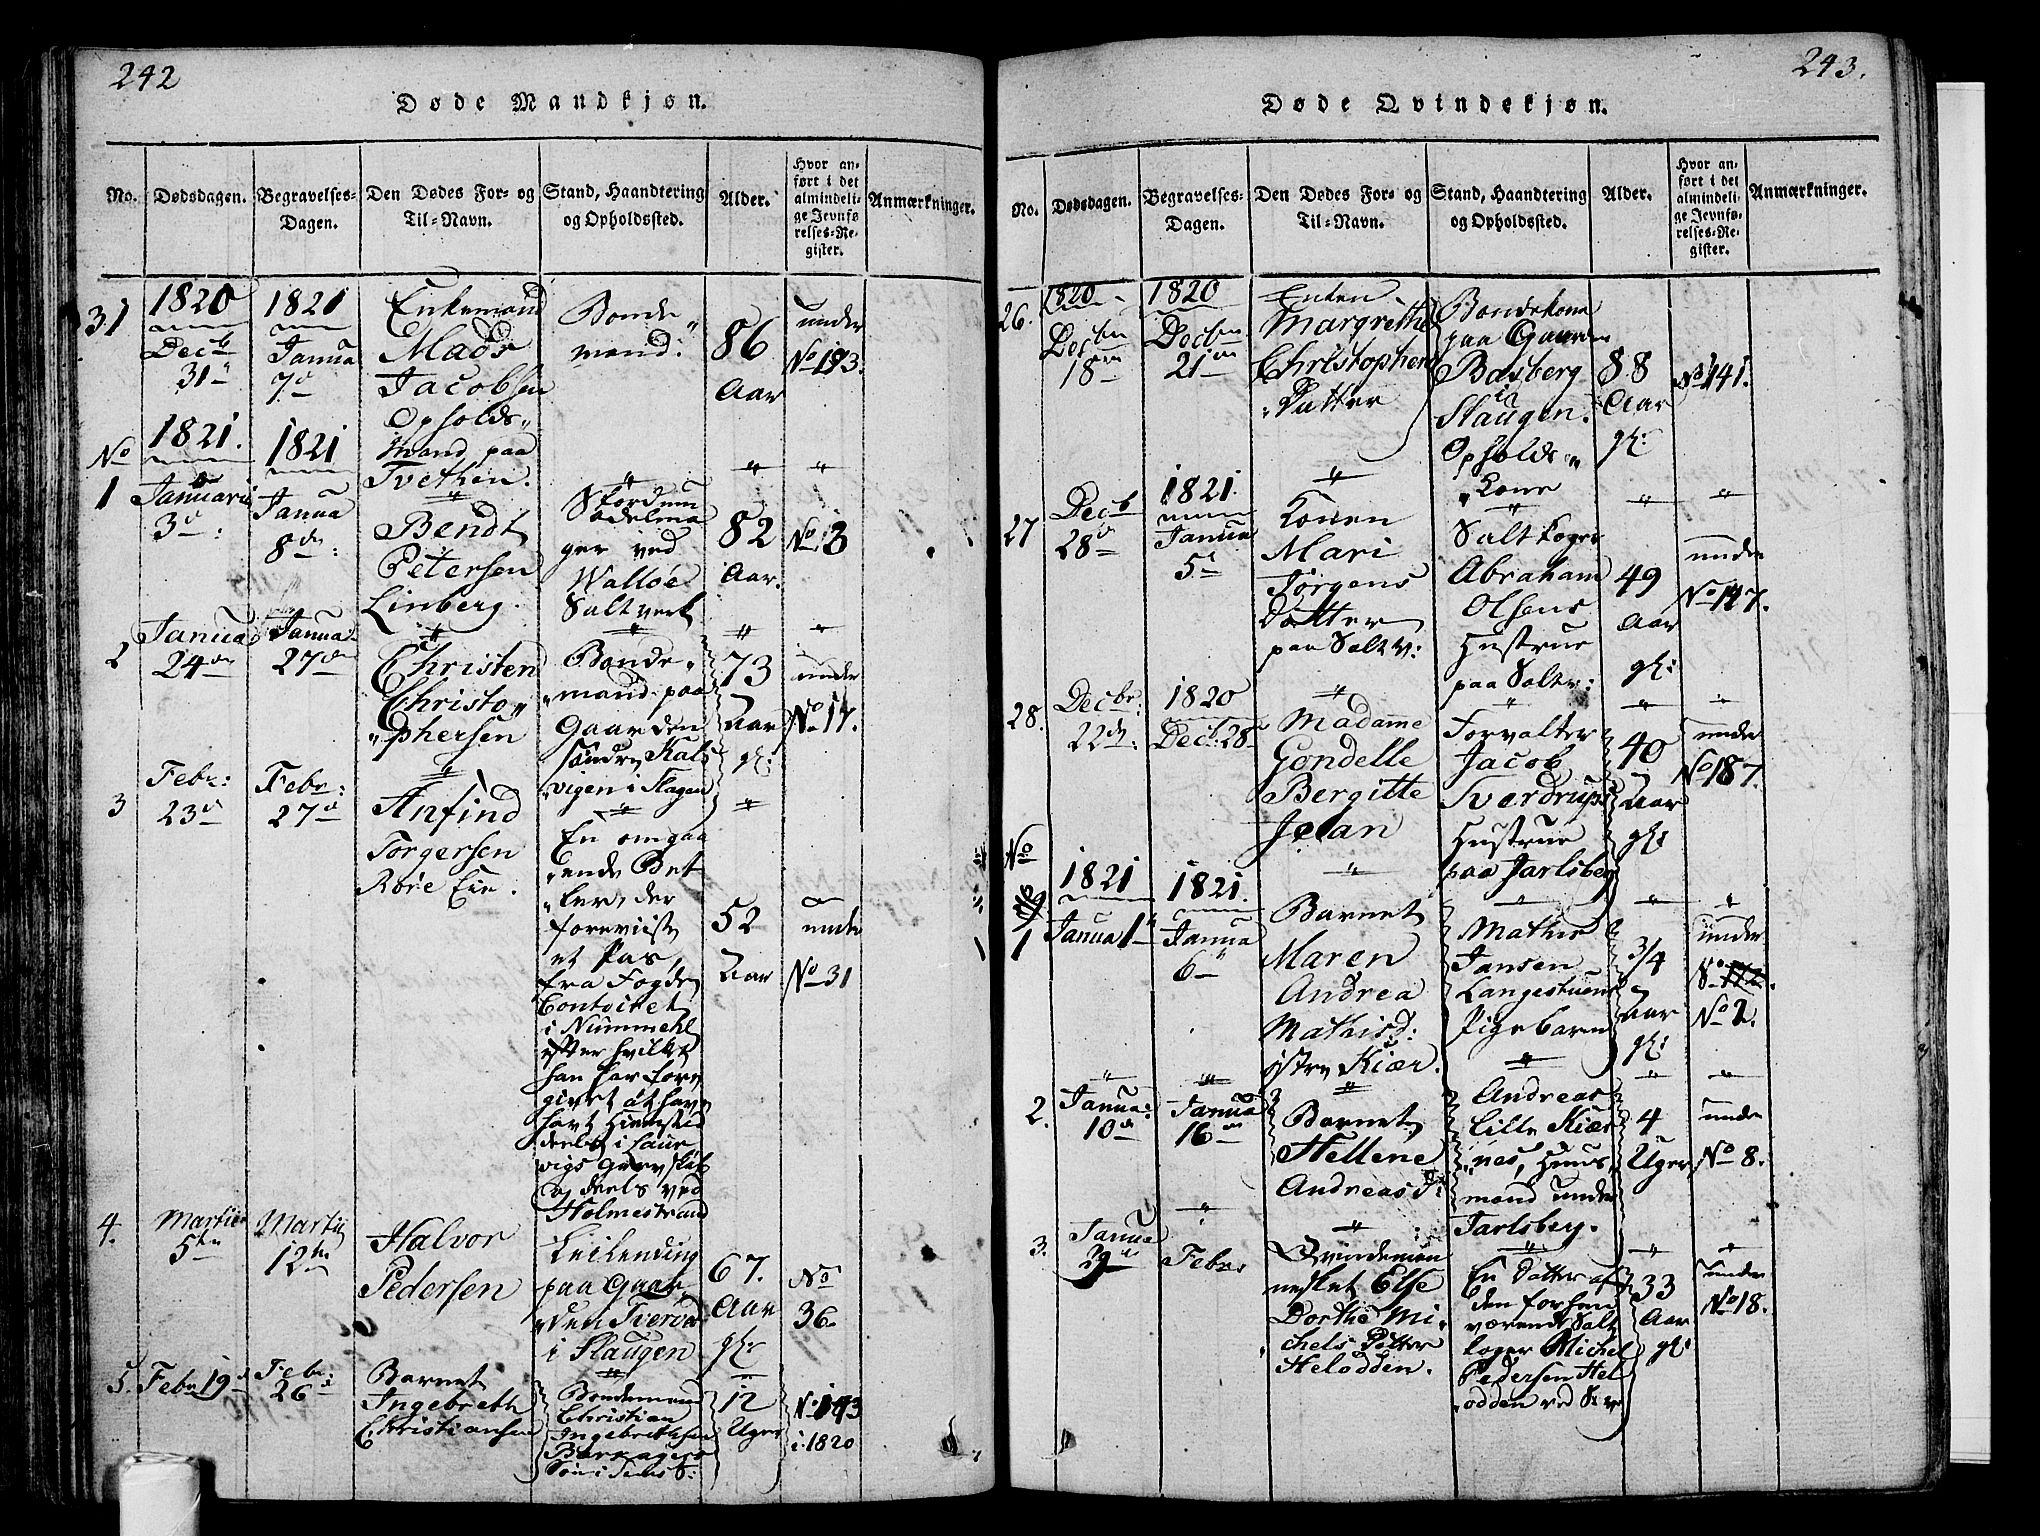 242
Døde Mandkjøn.
No.
Dødsdagen.
Begravelses-
Dagen.
Den Dødes For- og
Til-Navn.
Stand, Haandtering
og Opholdssted.
Alder.
Hvor an-
ført i det
almindeli-
ge Jevnfø
relses-Re-
gister.
Anmærkninger.
31
1820
Decb
31
1821
Janua
7
Enkemand
Mads
Jacobsen
Opholds„
mand paa
Tvethen.
Bonde„
mand:
86
Aar
under
No 193.
No
1
1821.
Januarii
3
1821
Janua
8
Bendt
Petersen
Linberg.
ger ved
Walløe
Saltverk
82
Aar.
No 3
2
Janua
24
Janua
27
Christen
Christo„
„phersen
Bonde„
„mand paa
Gaarden
Søndre
vigen i Slagen
73
Aar
gl:
under
No 17.
3
Febr:
23
Febr:
27
Anfind
Torgersen
Røre Eie.
En omgaa
„ende Bet
„ler, der
foreviiste
et Pas,
fra Fogde
Contoiret
i Nummehl
efter hvilket
han har fore
givet at have
havt Hiemsted
deels i Laur
vigs
og deels ved
Holmestrand
52
Aar
under
No 31
4.
Martii
5te
Martii
12te
Halvor
Pedersen
Leilending
paa Gaar„
„den
i Slaugen
67.
Aar
gl:
No
36
5.
Febr 19
Febr:
26
Barnet
Ingebreth
Christiansen
Bondemand
Christian
Ingebrethsen
Søn i Sems S:
12
Uger
No 193
i 1820
243.
Døde Qvindekjøn.
No.
Dødsdagen.
Begravelses-
Dagen.
Den Dødes For- og
Til-Navn.
Stand, Haandtering
og Opholdssted.
Alder.
Hvor an-
ført i det
almindeli-
ge Jevnfø-
relses-Re-
gister.
Anmærkninger.
26.
1820
Decbr
18
1820
Decbr
21
Enken
Margrethe
Christophers
„Datter
Bondekone
paa Gaarden
Basberg
i
Slaugen.
Opholds„
„Kone
88
Aar
gl:
No 141.
27
Decb
28
1821.
Janua
5
Konen
Mari
Jørgens
Datter
paa Saltv:
Saltkoger
Abraham
Olsens
Hustrue
paa Saltv:
49
Aar
gl:
under
No 147.
28.
Decbr:
22
1820
Decb: 28
Madame
Gondelle
Bergitte
Jelan
Forvalter
Jacob
Sverdrups
Hustrue
paa Jarlsberg
40
Aar
gl:
under
No 187.
No
1
1821
Janua 1
1821.
Janua
6
Barnet
Maren
Andrea
Mathisd:
østre Kiær.
Mathis
Jansen
Langestuens
Pigebarn
3/4
Aar
gl:
under
No 2.
2.
Janua:
10
Janua
16
Barnet
Hellene
Andreas D:
Andreas
Lille Kiær
„nes, Huus„
mand under
Jarlsberg.
4
Uger
under
No 8.
3.
Janua
29
Febr:
Qvindemen
nesket Else
Dorthe Mi„
„chels Datter
Helodden.
En Datter af
den forhen
værende Salt
koger Michel
Pedersen Hel
„odden ved S. v.
33
Aar
gl:
under
No 18.